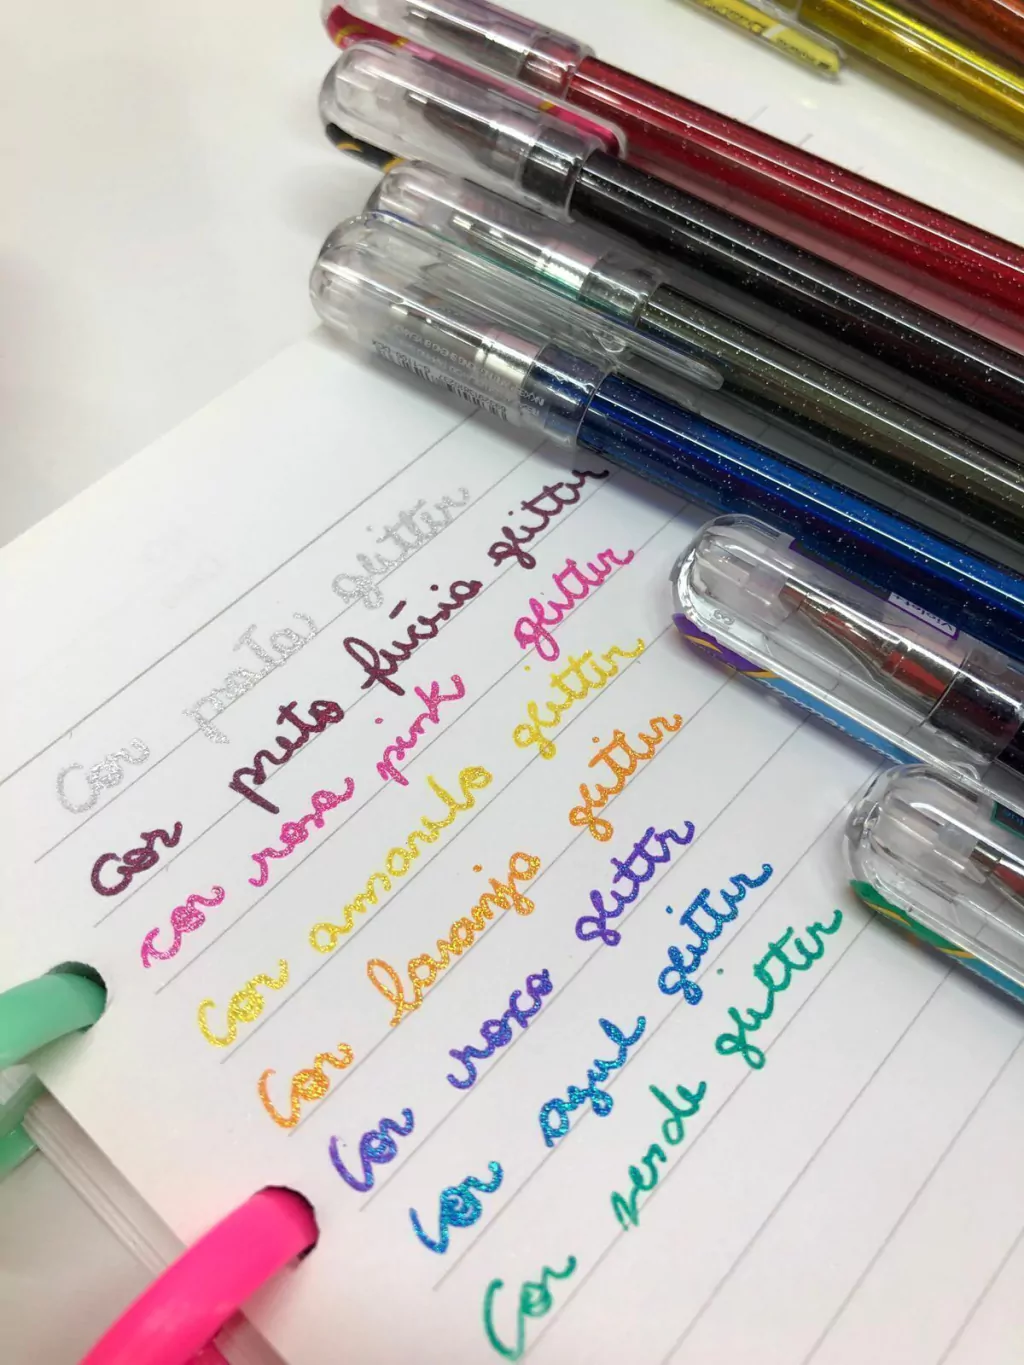 Cor prata glitter
Cor preto fúcsia glitter
cor rosa pink glitter
Cor amarelo glitter
Cor laranja glitter
Cor roxo glitter
Cor azul glitter
Cor verde glitter
Violet